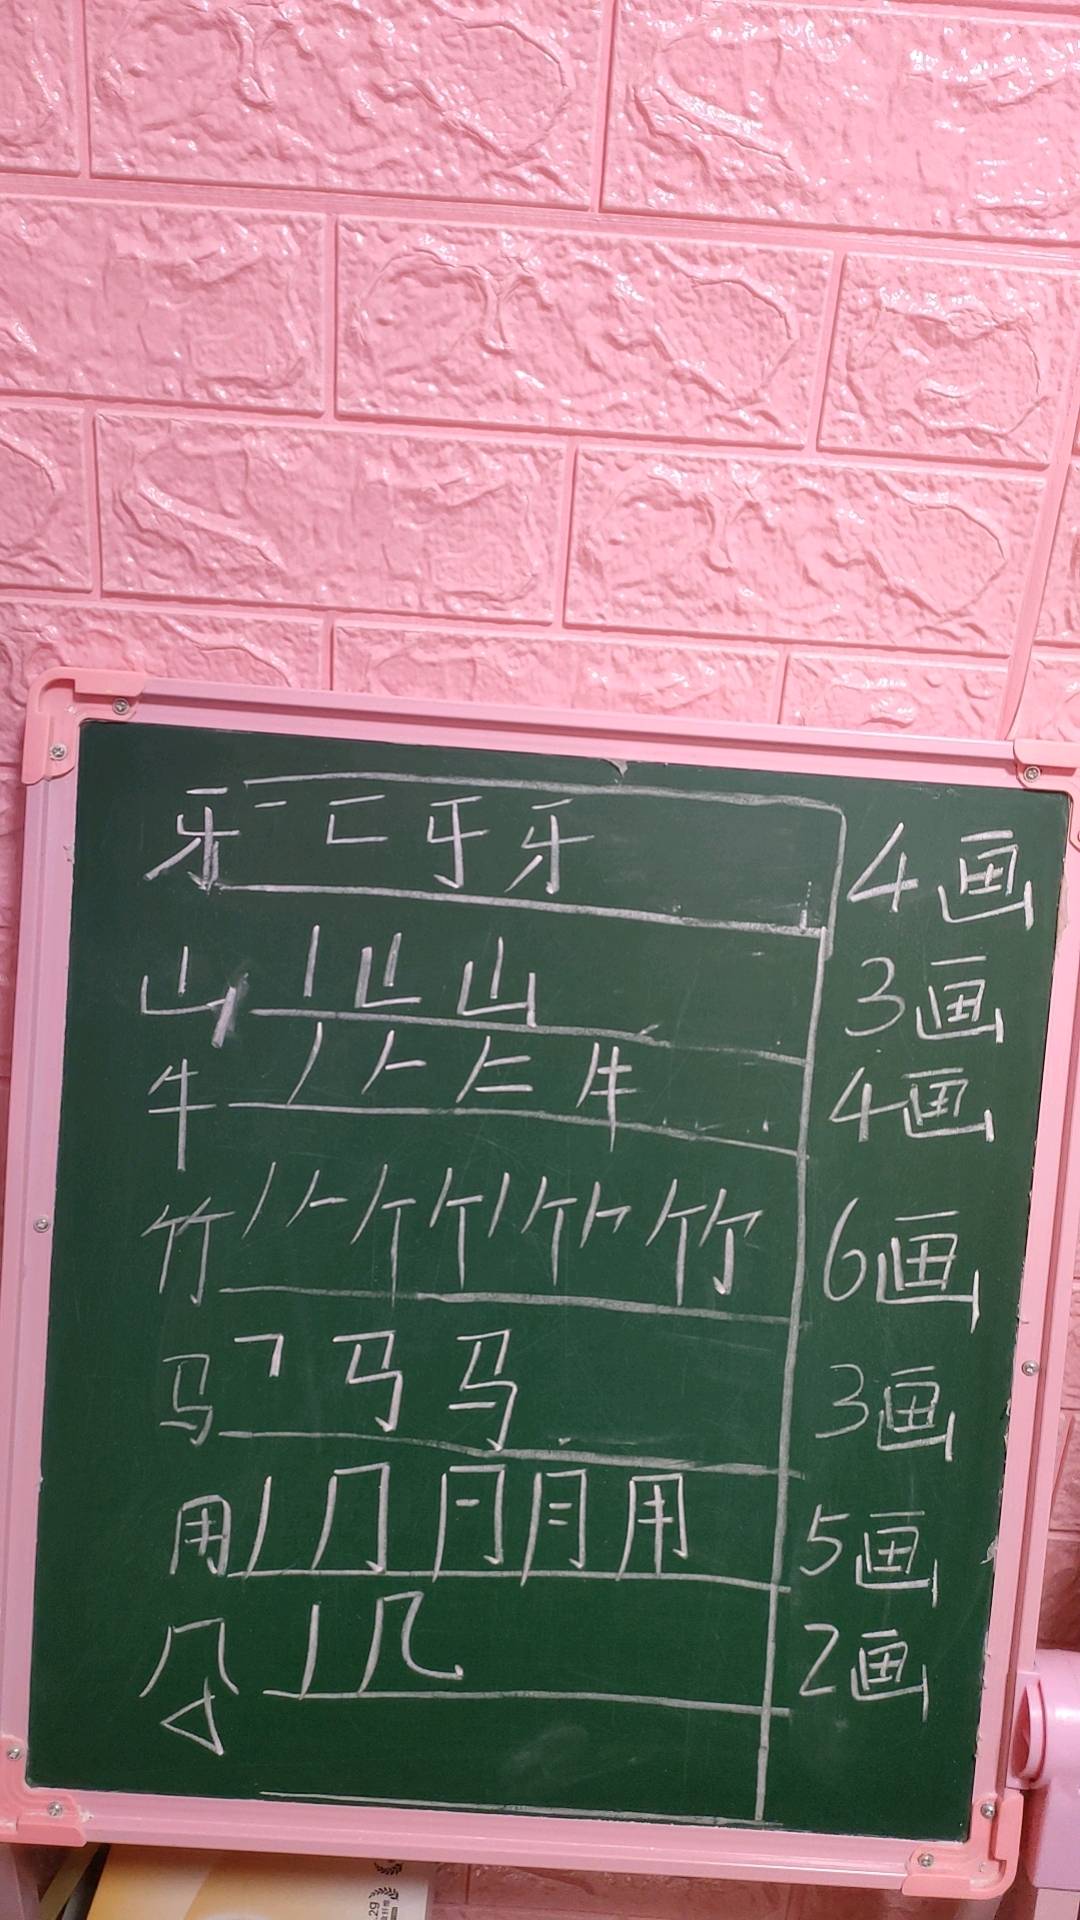 牙 一 ㄷ 于 牙 4画
山 丨 凵 山 3画
牛 丿 𠂉 牛 4画
竹 丿 𠂉 竹 6画
马 ㇕ 马 3画
用 丿 冂 月 用 5画
几 丿 几 2画
2g